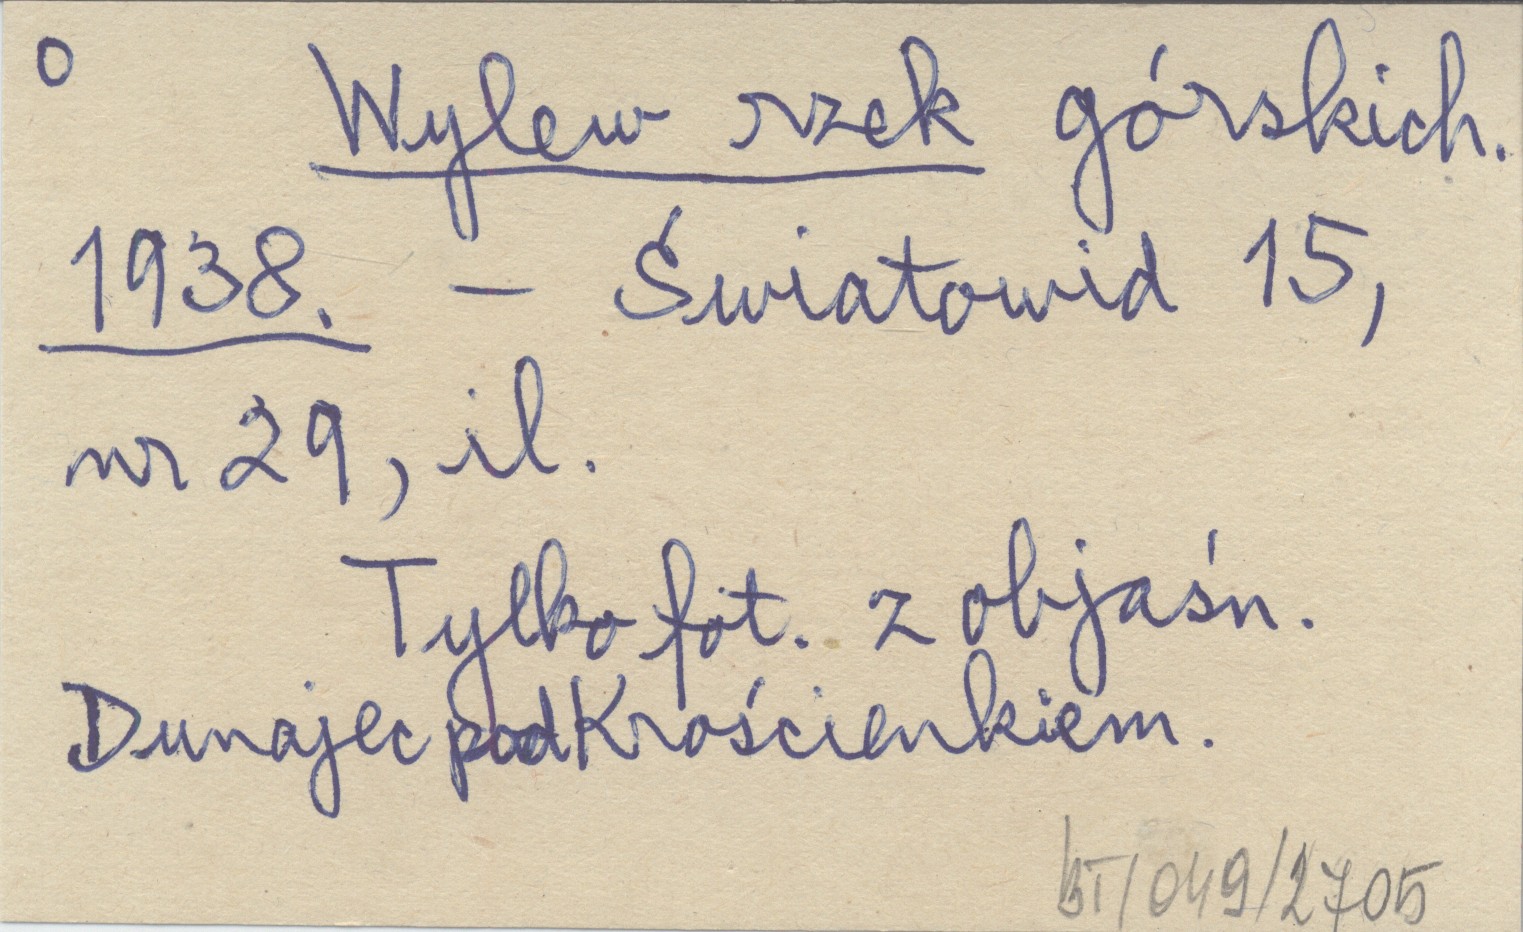 o Wylew rzek górskich.
1938. — Światowid 15,
nr 29, il.
Tylko fot. z objaśn.
Dunajec pod Krościenkiem.
BT/049/2705